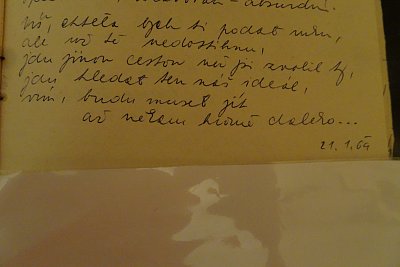 absurdní.
víš, chtěla bych ti podat ruku,
ale už tě nedostihnu,
jdu jinou cestou než jsi zvolil ty,
jdu hledat ten náš ideál,
vím, budu muset jít
až někam hrozně daleko...
21.1.69